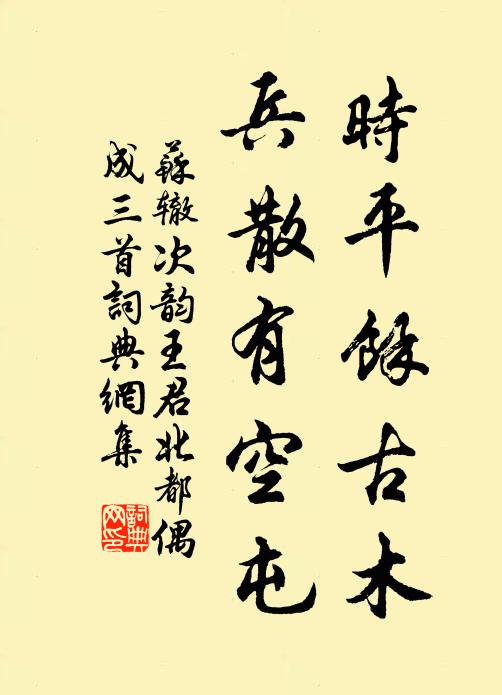 時平餘古木
兵散有空屯
蘇辙次韵王君北都偶
成三首詞典網集
詞典
网印